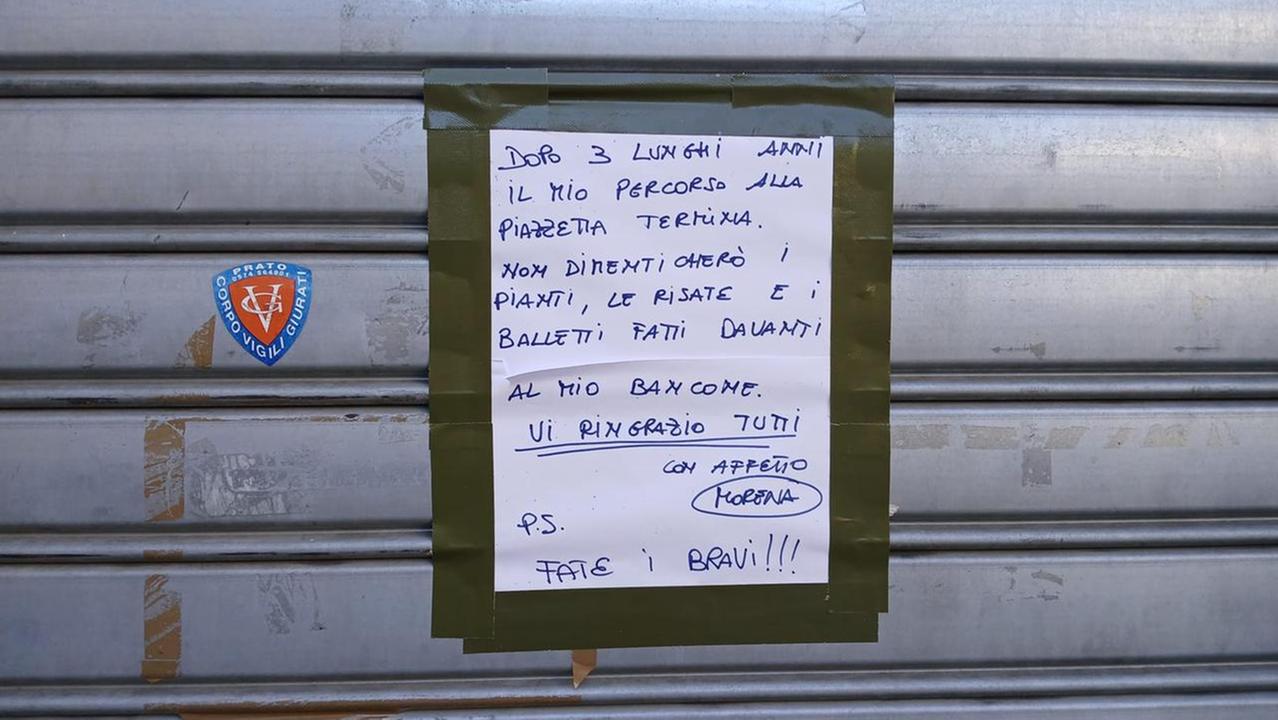 DOPO 3 LUNGHI ANNI
IL MIO PERCORSO ALLA
PIAZZETTA TERMINA.
NON DIMENTICHERÒ I
PIANTI, LE RISATE E I
BALLETTI FATTI DAVANTI
AL MIO BANCONE.
VI RINGRAZIO TUTTI
CON AFFETTO
MORENA
P.S.
FATE I BRAVI!!!
PRATO
0574 564801
CORPO VIGILI GIURATI
VG